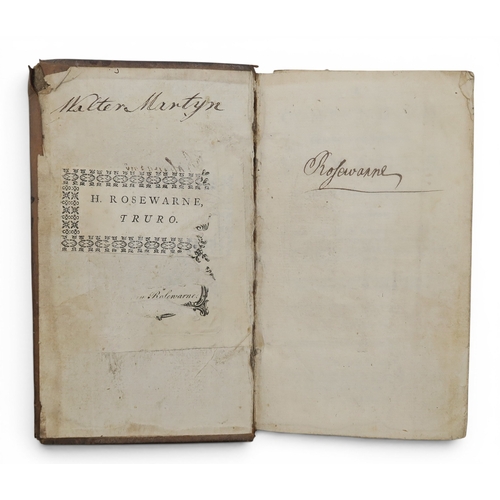 Walter Martyn
H. ROSEWARNE,
TRURO.
Rosewarne
Rosewarne